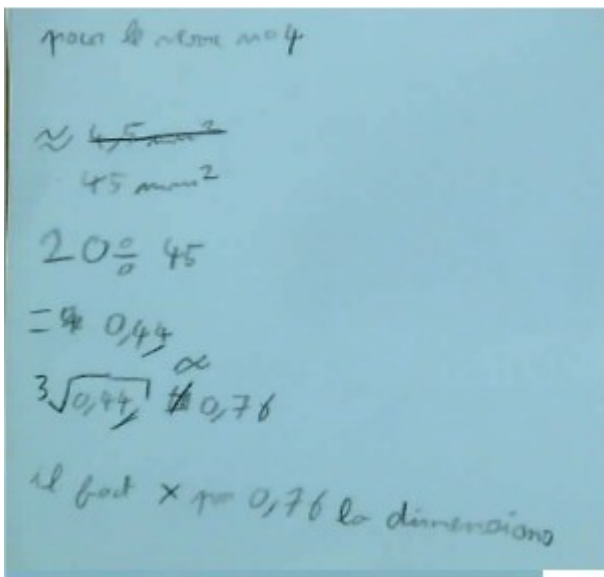 pour le verre no 4
≈ 4,5 mm²
45 mm²
20 ÷ 45
= 0,44
∝
3√0,44 0,76
il faut × par 0,76 la dimensions